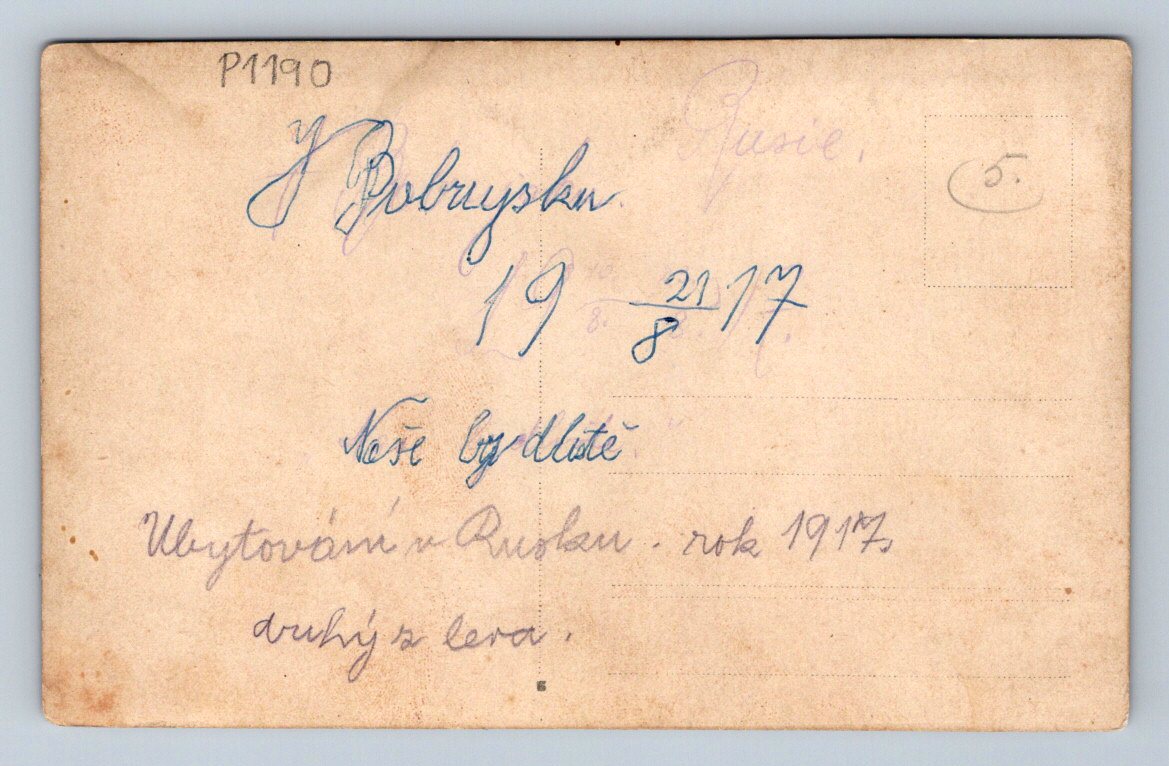 P1190
Rusie.
5.
V Bobrujsku
19 21/8 17
Naše bydliště
Ubytování v Rusku. rok 1917,
druhý z leva.
6